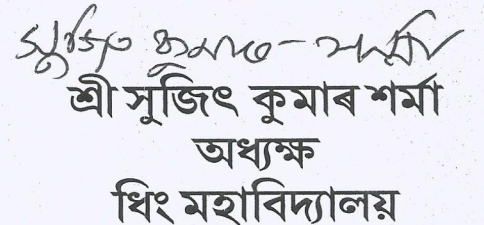 সুজিত কুমাৰ শৰ্মা
শ্ৰী সুজিৎ কুমাৰ শৰ্মা
অধ্যক্ষ
ধিং মহাবিদ্যালয়